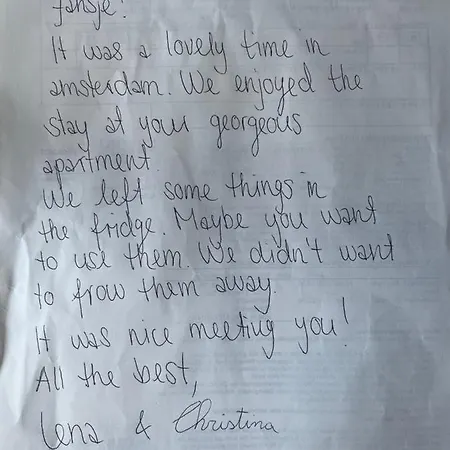 fansje!
It was a lovely time in
amsterdam. We enjoyed the
stay at your georgeous
apartment.
We left some things in
the fridge. Maybe you want
to use them. We didn't want
to frow them away.
It was nice meeting you!
All the best,
Lena & Christina